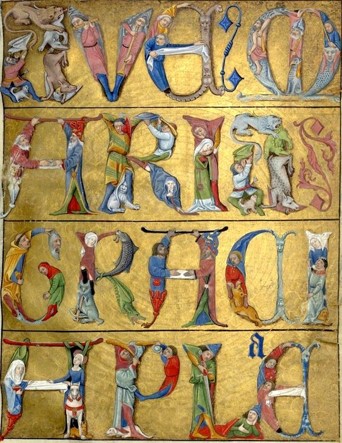 AVEM
ARIA
GRACI
APLE a